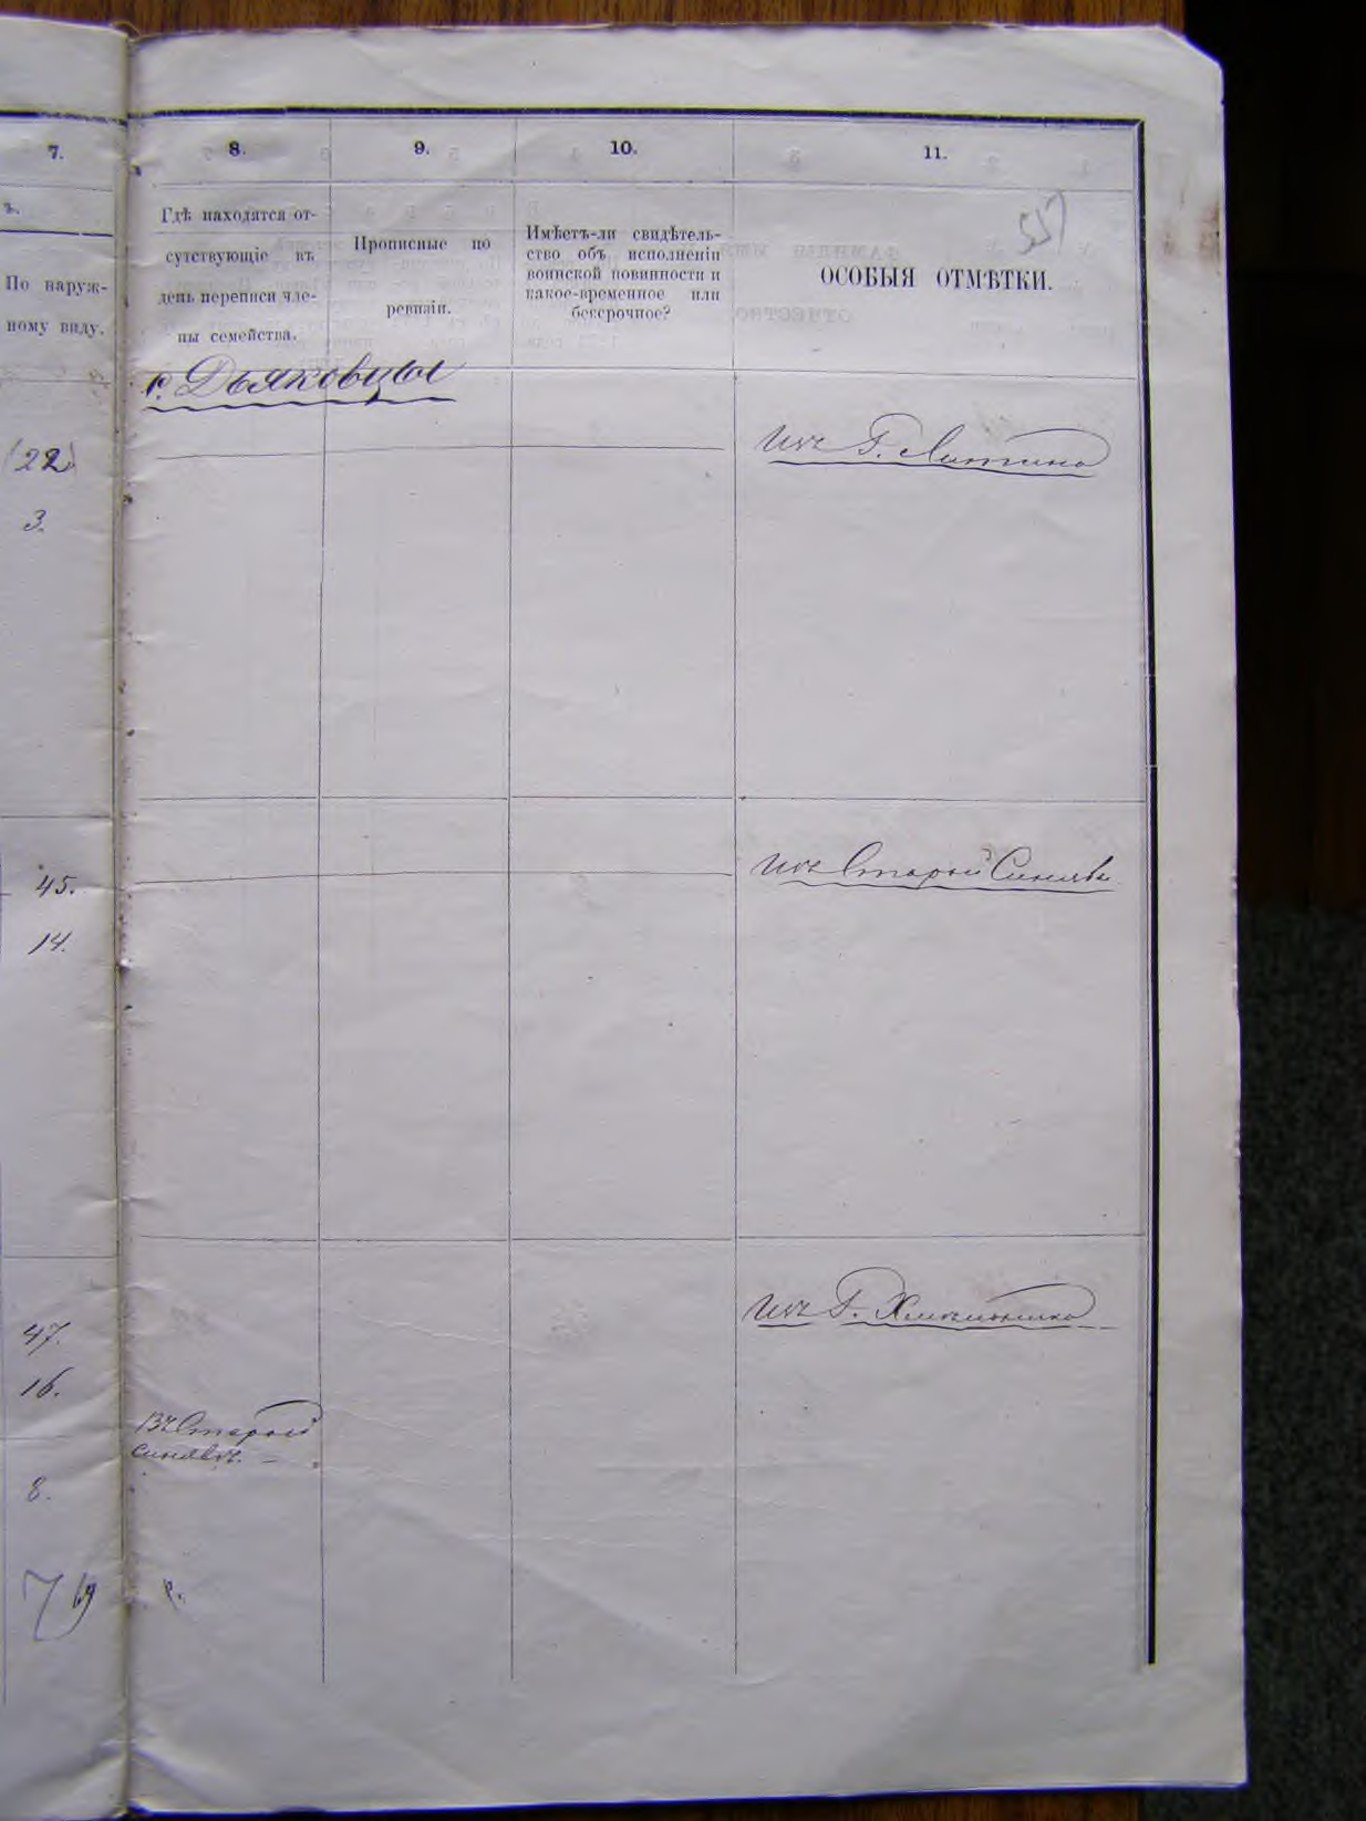 7.
8.
9.
10.
11.
557
ъ.
По наруж-
ному виду.
Гдѣ находятся от-
сутствующіе въ
день переписи чле-
ны семейства.
Прописные по
ревизіи.
Имѣетъ-ли свидѣтель-
ство объ исполненіи
воинской повинности и
какое-временное или
безсрочное?
ОСОБЫЯ ОТМѢТКИ.
с. Дьяковцы
(22)
Изъ Г. Литина
3.
45.
Изъ Старой Синявы
14.
47.
Изъ Г. Хмѣльника
16.
Въ Старой
Синявѣ.
8.